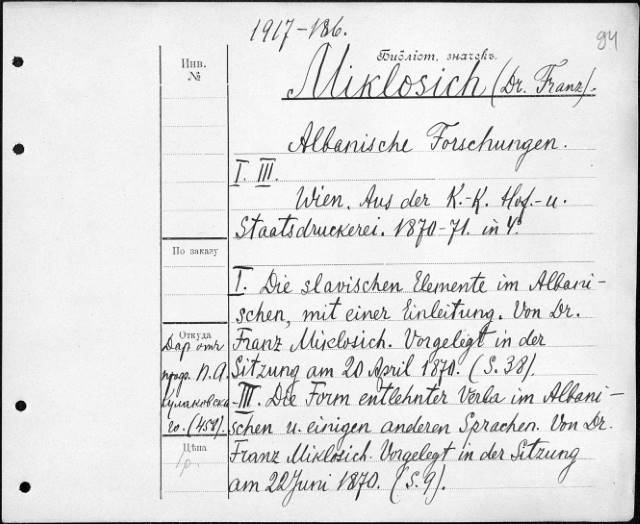 1917-186.
94
Библіот. значокъ.
Инв.
№
Miklosich (Dr. Franz).
Albanische Forschungen.
I. III.
Wien. Aus der K.-K. Hof.- u.
Staatsdruckerei. 1870-71. in 4°
По заказу
I. Die slavischen Elemente im Albani-
schen, mit einer Einleitung. Von Dr.
Franz Miklosich. Vorgelegt in der
Sitzung am 20 April 1870. (S. 38).
III. Die Form entlehnter Verba im Albani-
schen u. einigen anderen Sprachen. Von Dr.
Franz Miklosich. Vorgelegt in der Sitzung
am 22 Juni 1870. (S. 9).
Откуда
Дар отъ
проф. П. А.
Кулаковска-
го. (458).
Цѣна
1р.